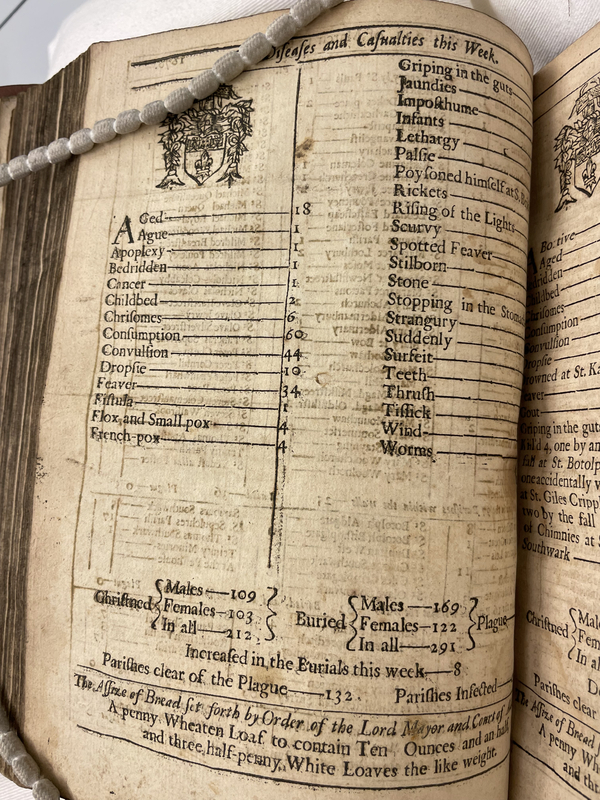 Diseases and Casualties this Week.
AGed 18
Ague 1
Apoplexy 1
Bedridden 1
Cancer 1
Childbed 2
Chrisomes 6
Consumption 60
Convulsion 44
Dropsie 10
Feaver 34
Fistula 1
Flox and Small pox 4
French-pox 4
Griping in the guts
Jaundies
Imposthume
Infants
Lethargy
Palsie
Poysoned himself at S.
Rickets
Rising of the Lights
Scurvy
Spotted Feaver
Stilborn
Stone
Stopping in the Stom
Strangury
Suddenly
Surfeit
Teeth
Thrush
Tissick
Wind
Worms
Christned { Males—109
Females—103
In all—212 }
Buried { Males—169
Females—122
In all—291 } Plague
Increased in the Burials this week—8
Parishes clear of the Plague—132. Parishes Infected
The Assize of Bread set forth by Order of the Lord Mayor and Court of A
A penny Wheaten Loaf to contain Ten Ounces and an half,
and three half-penny White Loaves the like weight.
Abortive
Aged
Bedridden
Childbed
Chrisomes
Consumption
Convulsion
Dropsie
Drowned at St. Ka
Feaver
Gout
Griping in the guts
Kil'd 4, one by an
fall at St. Botolp
one accidentally w
at St. Giles Crippl
two by the fall
of Chimnies at S
Southwark
Christned { Male
Fem
In al
De
Parishes clear
The Assize of Bread
A penny Wh
and thr